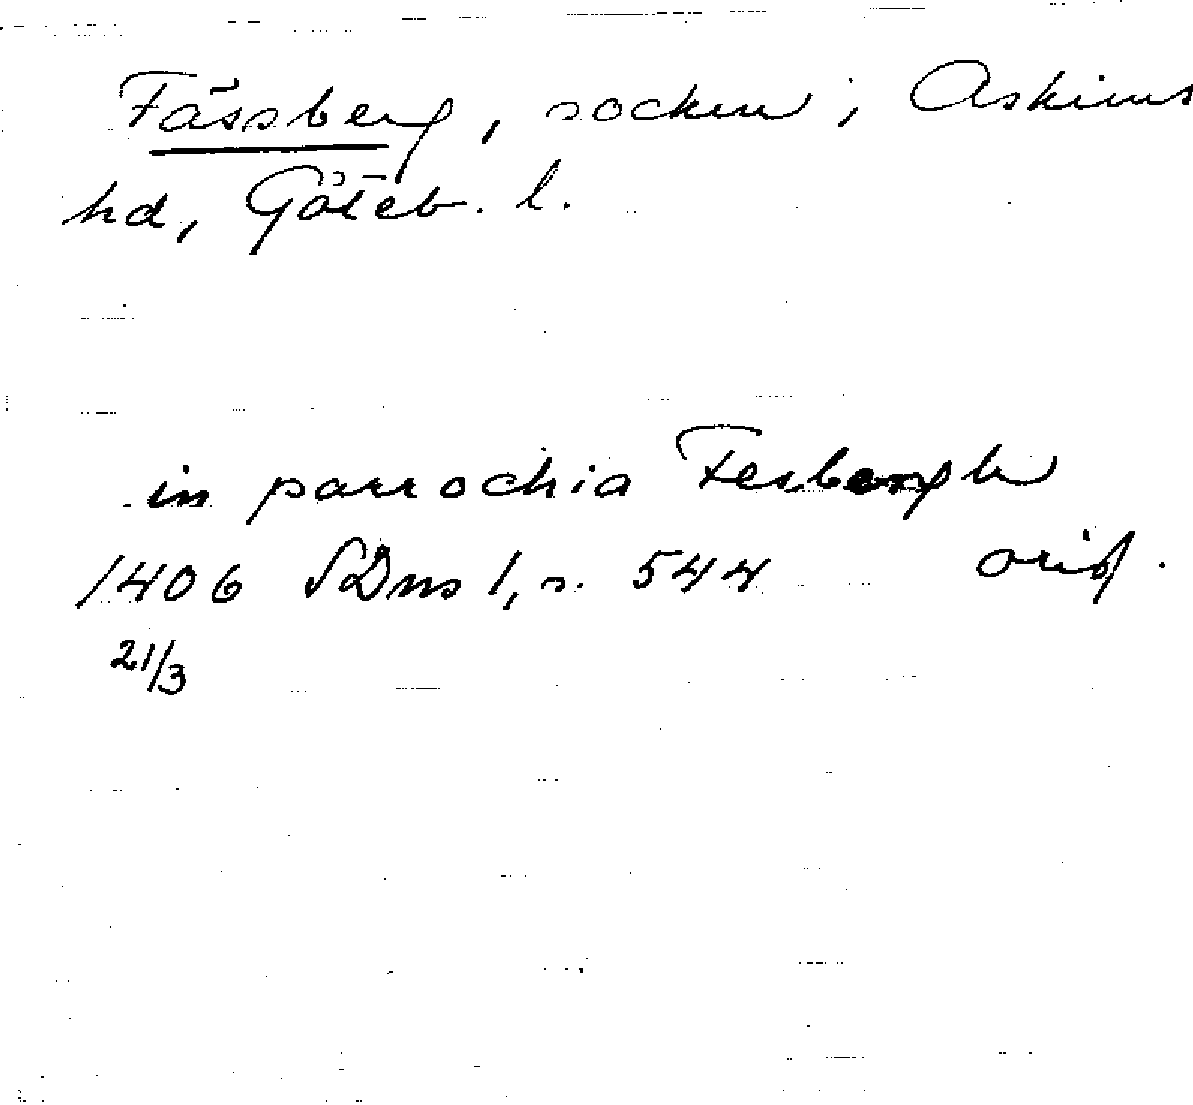 Fässberg, socken; Askims
hd, Göteb. l.
in parrochia Fesbergh
1406 SDns 1, s. 544 orig.
21/3